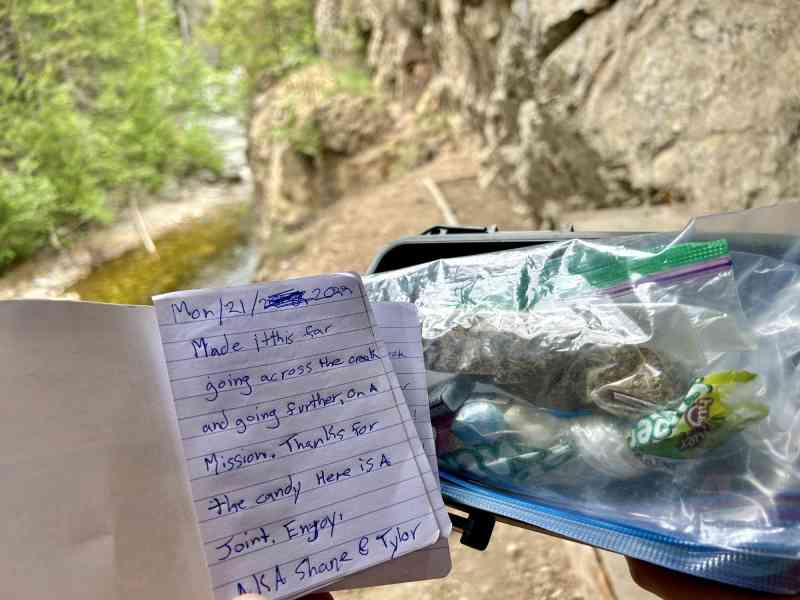 Mon/21/ 2022
Made it this far
going across the creek
and going further, On A
Mission. Thanks for
the candy Here is A
Joint. Enjoy,
AKA Shane & Tylor